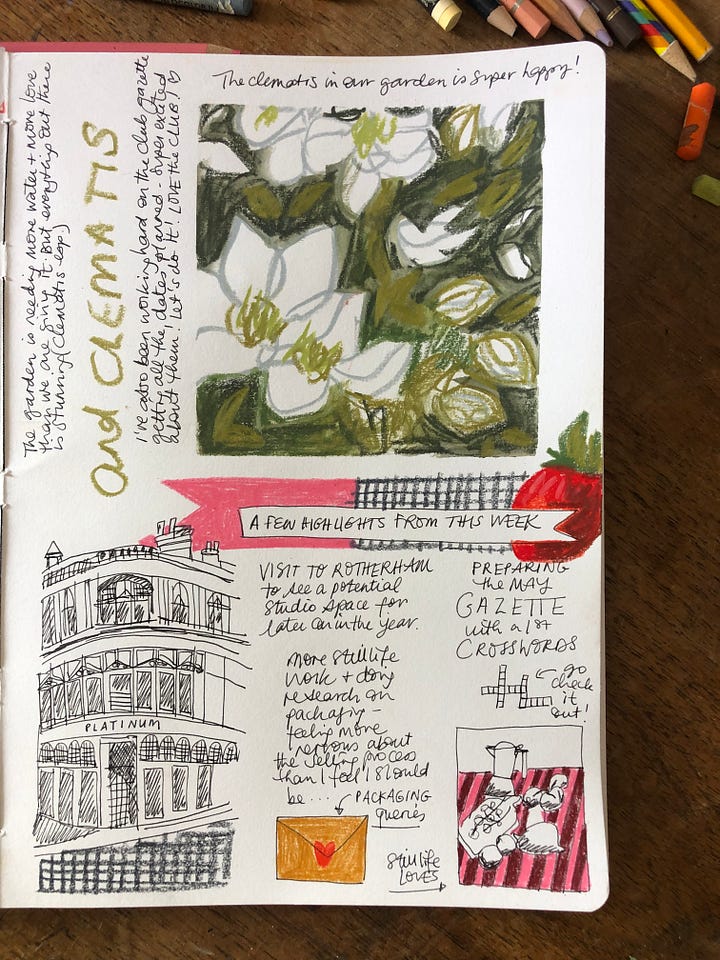 The clematis in our garden is super happy!
The garden is needing more water + more love
than we are giving it. But everything out there
is stunning (clematis esp.)
and CLEMATIS
I've also been working hard on the club gazette
getting all the dates planned - super excited
about them! Let's do it! LOVE the CLUB!
A FEW HIGHLIGHTS FROM THIS WEEK
VISIT TO ROTHERHAM
to see a potential
studio space for
later on in the year.
More still life
work + doing
research on
packaging -
feeling more
nervous about
the selling process
than I feel I should
be....
PACKAGING
queries
PREPARING
the MAY
GAZETTE
with a 1st
CROSSWORDS
go
check
it
out!
PLATINUM
Still life
LOVES